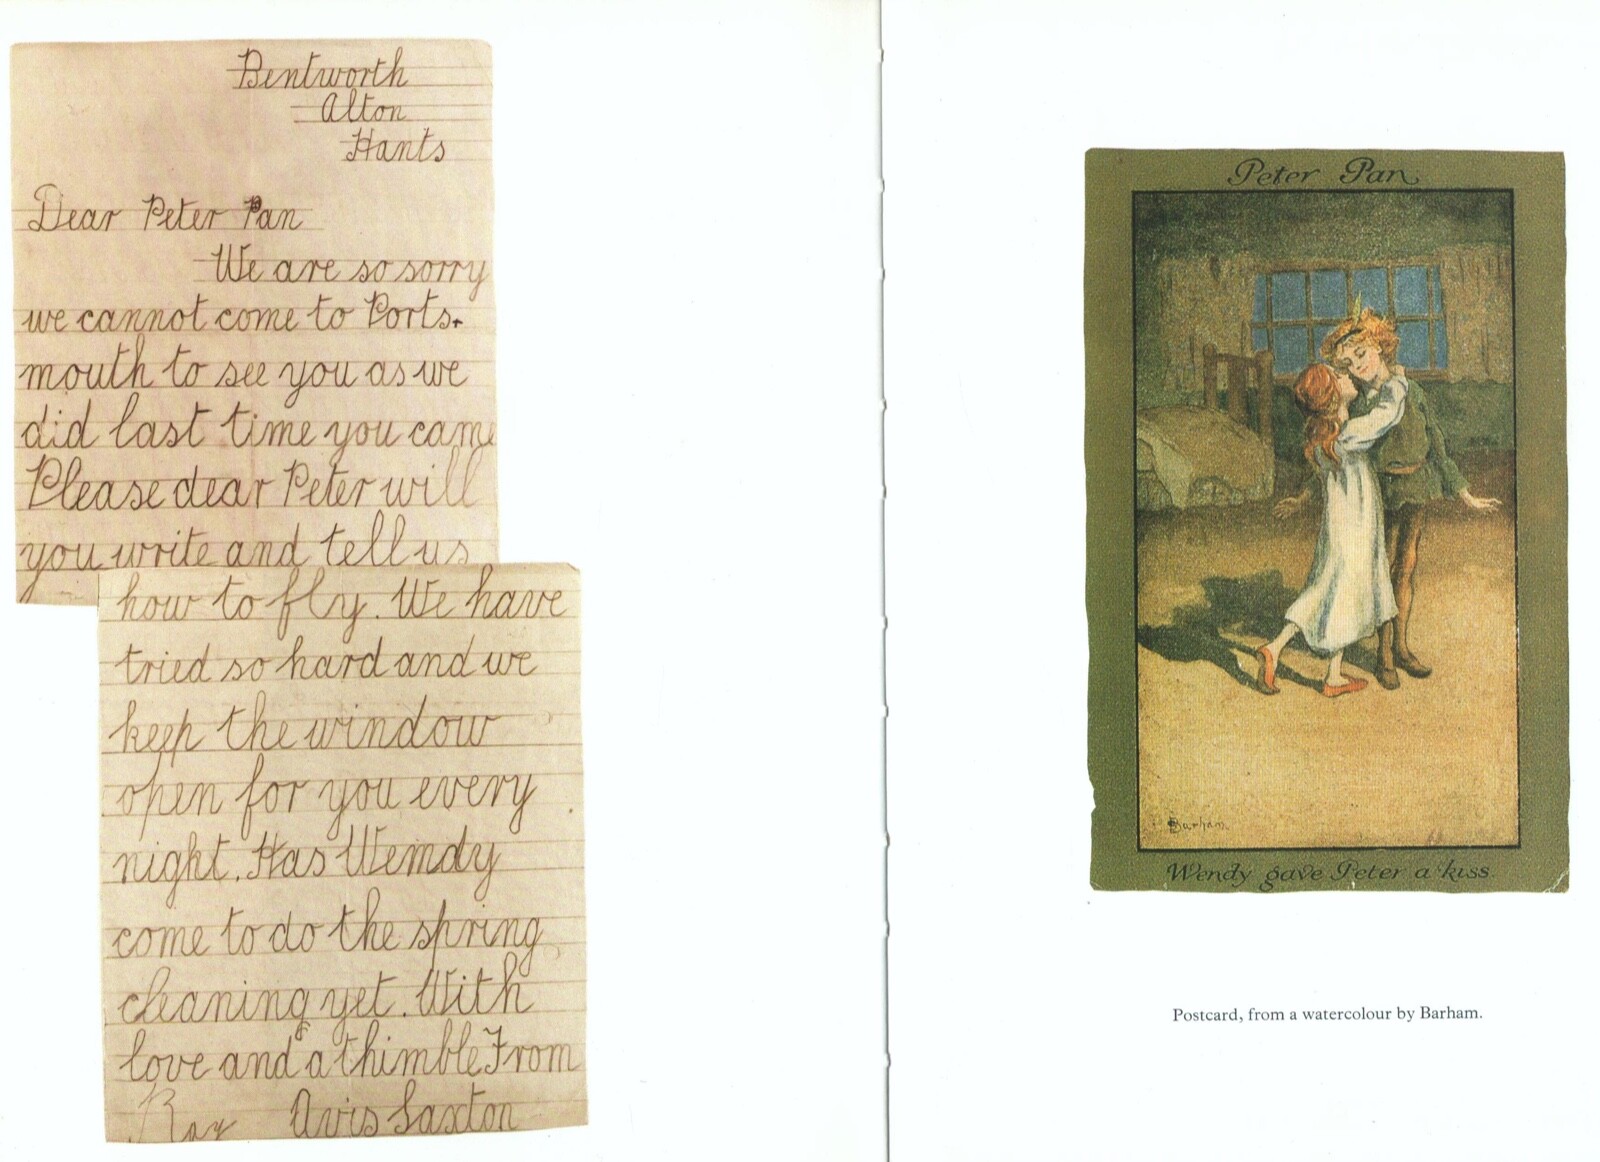 Bentworth
Alton
Hants
Dear Peter Pan
We are so sorry
we cannot come to Ports-
mouth to see you as we
did last time you came
Please dear Peter will
you write and tell us
how to fly. We have
tried so hard and we
keep the window
open for you every
night. Has Wendy
come to do the spring
cleaning yet. With
love and a thimble From
Ray Avis Saxton
Peter Pan
Barham
Wendy gave Peter a kiss
Postcard, from a watercolour by Barham.